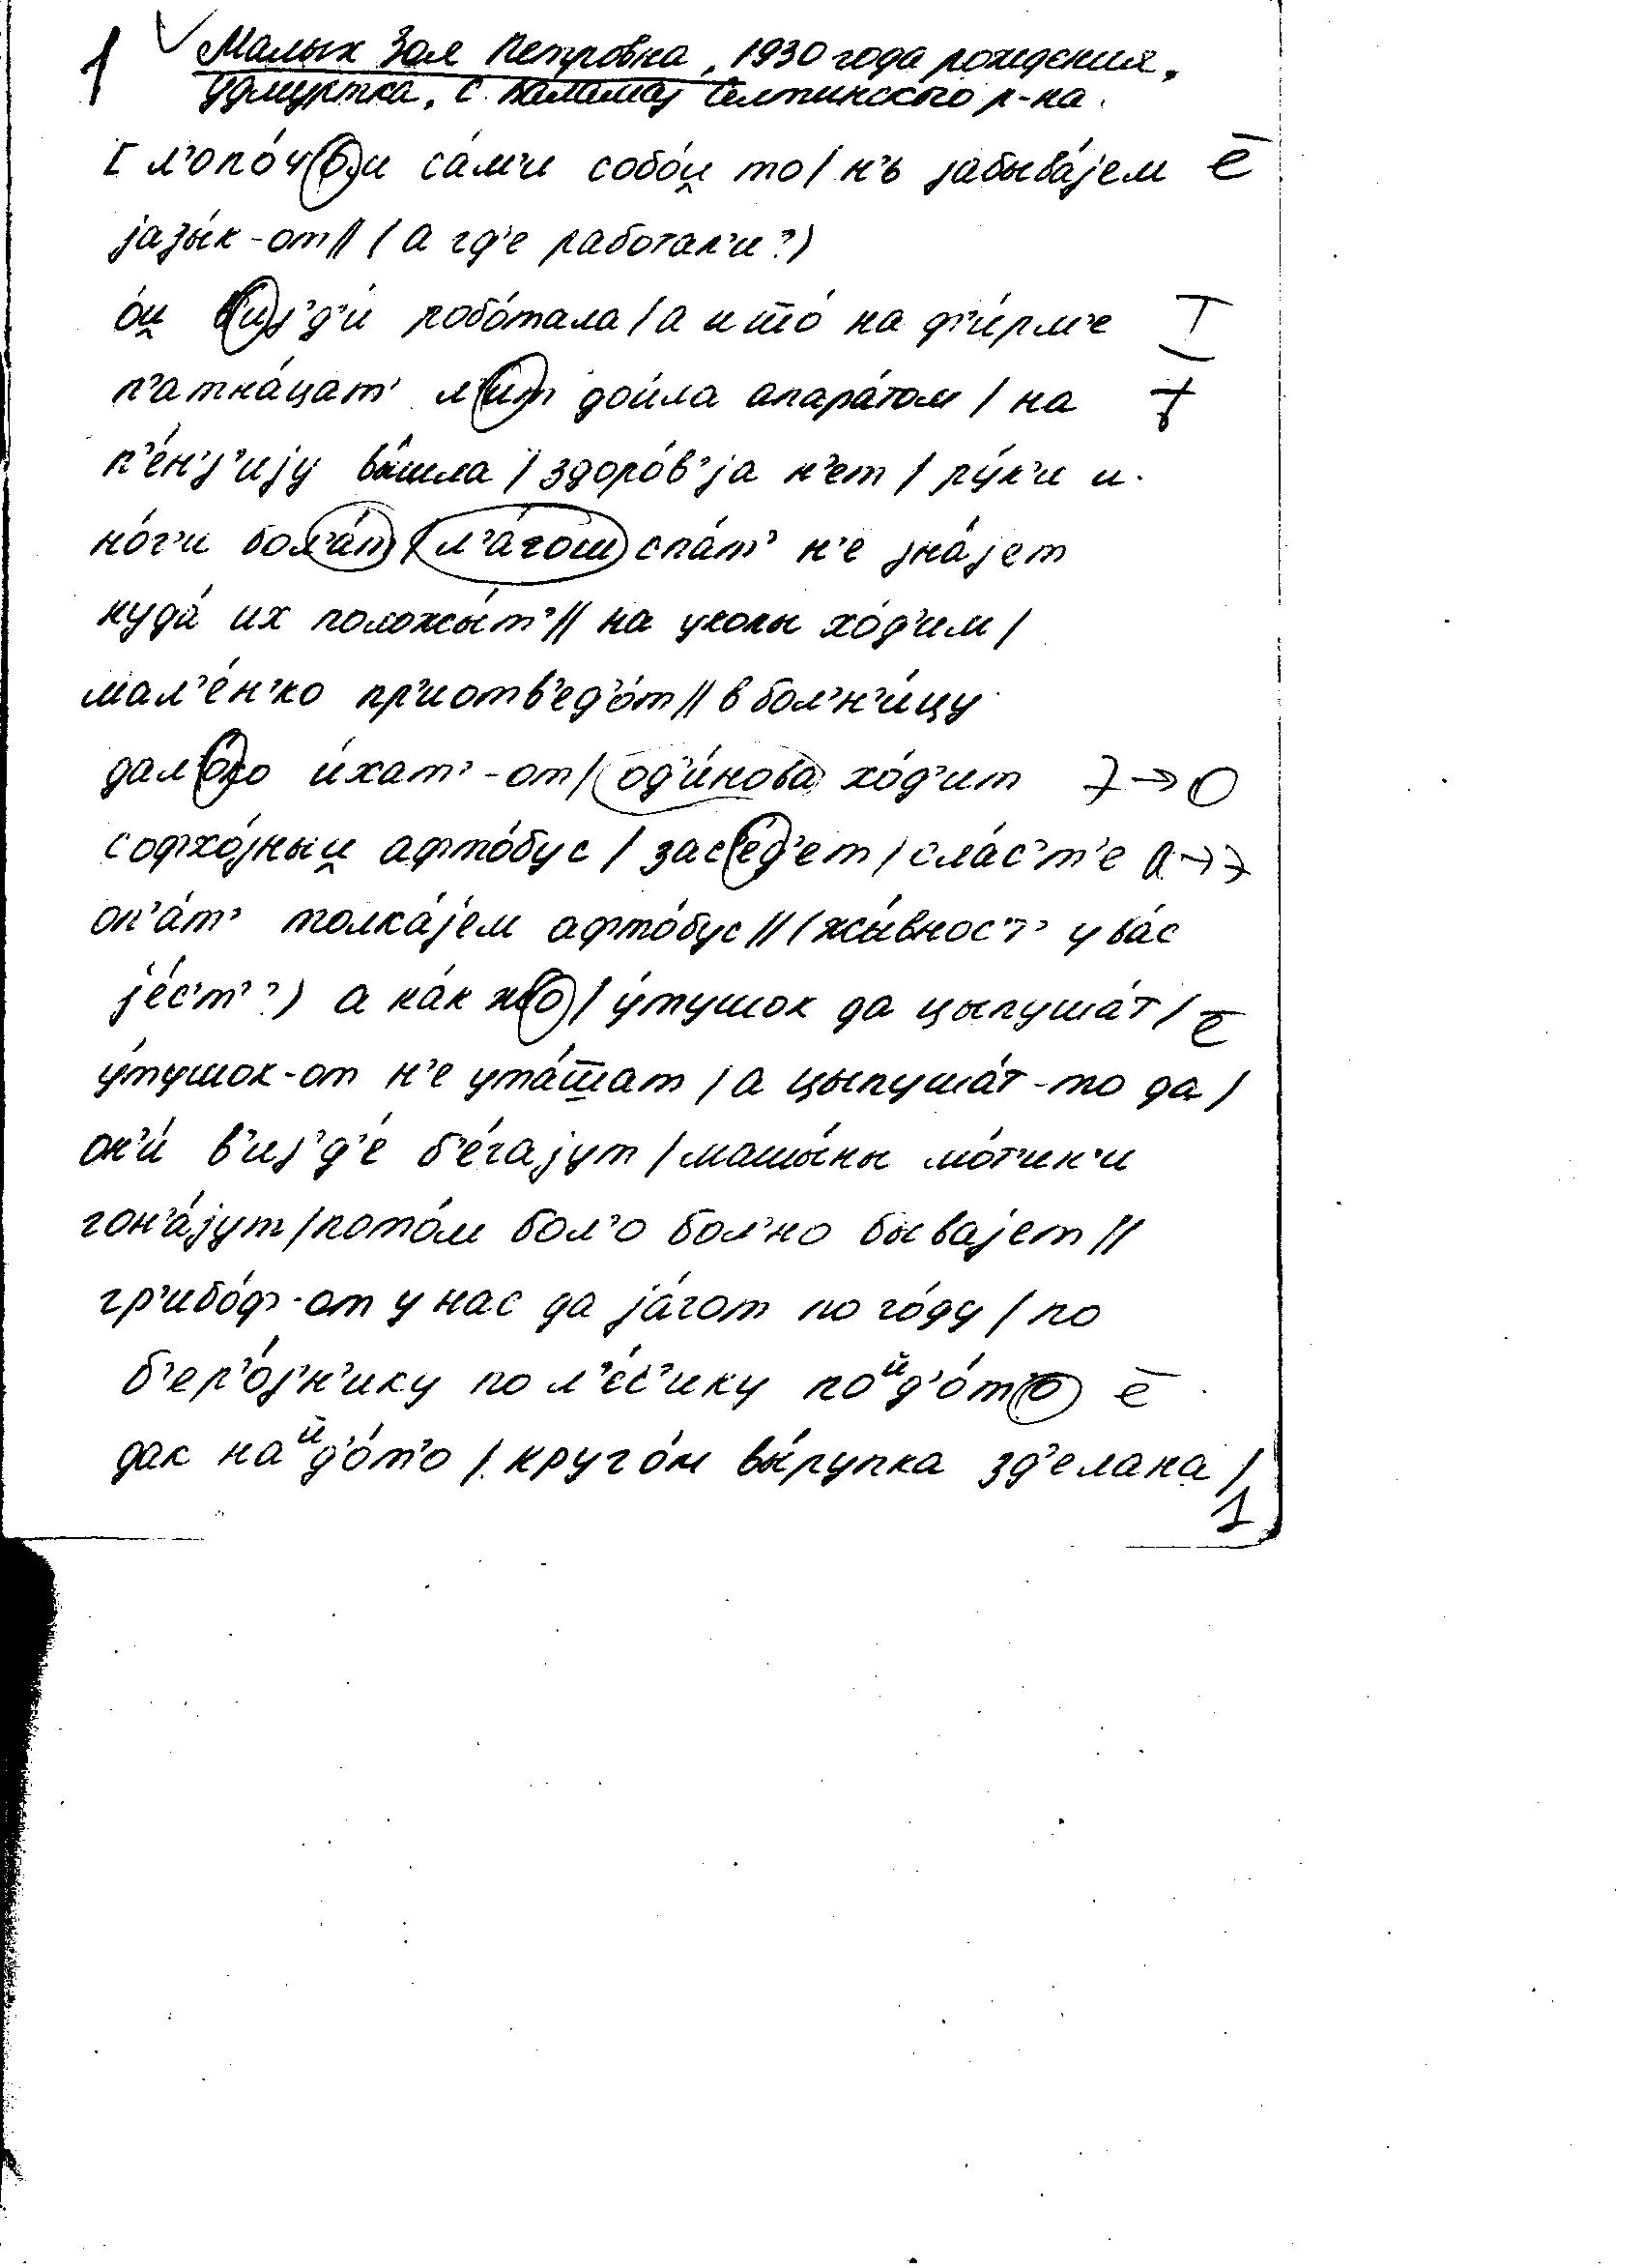 1 Малых Зоя Петровна, 1930 года рождения,
Удмуртка, с. Селтинского р-на.
[л'опо́ч'о́и са́м'и собо́й то / н'ь забыва́јем ē
јазы́к-от // (а гд'е работал'и?)
о́й в'изд'и́ робо́тала / а што́ на ф'и́рм'е
п'атна́цат' л'ит дои́ла апара́том / на ѣ
п'е́н'з'ију вы́шла / здоро́в'ја н'ет / ру́к'и и
но́г'и бол'а́т / л'а́гош спа́т' н'е зна́јет
куда́ их положы́т' // на уколы хо́д'им /
мал'е́н'ко пр'иотв'ед'о́т // в бол'н'и́цу
дал'о́ко и́хат'-от / од'и́нова хо́д'ит
софхо́зный афто́бус / зас'е́д'ет / сла́с'т'е
оп'а́т' толка́јем афто́бус // (жы́внос'т' у ва́с
је́с'т'?) а ка́к жо / у́тушок да цыпуша́т / ē
у́тушок-от н'е ута́шат / а цыпуша́т-то да /
он'и́ в'изд'е́ б'е́гајут / машы́ны мо́т'ик'и
гон'а́јут / пото́м бол'о бол'но бывајет //
гр'ибо́ф-от у нас да ја́гот по го́ду / по
б'ер'о́з'н'ику по л'е́с'ику пойд'о́т'о ē
дак найд'о́т'о / круго́м вы́рупка зд'елана /
1